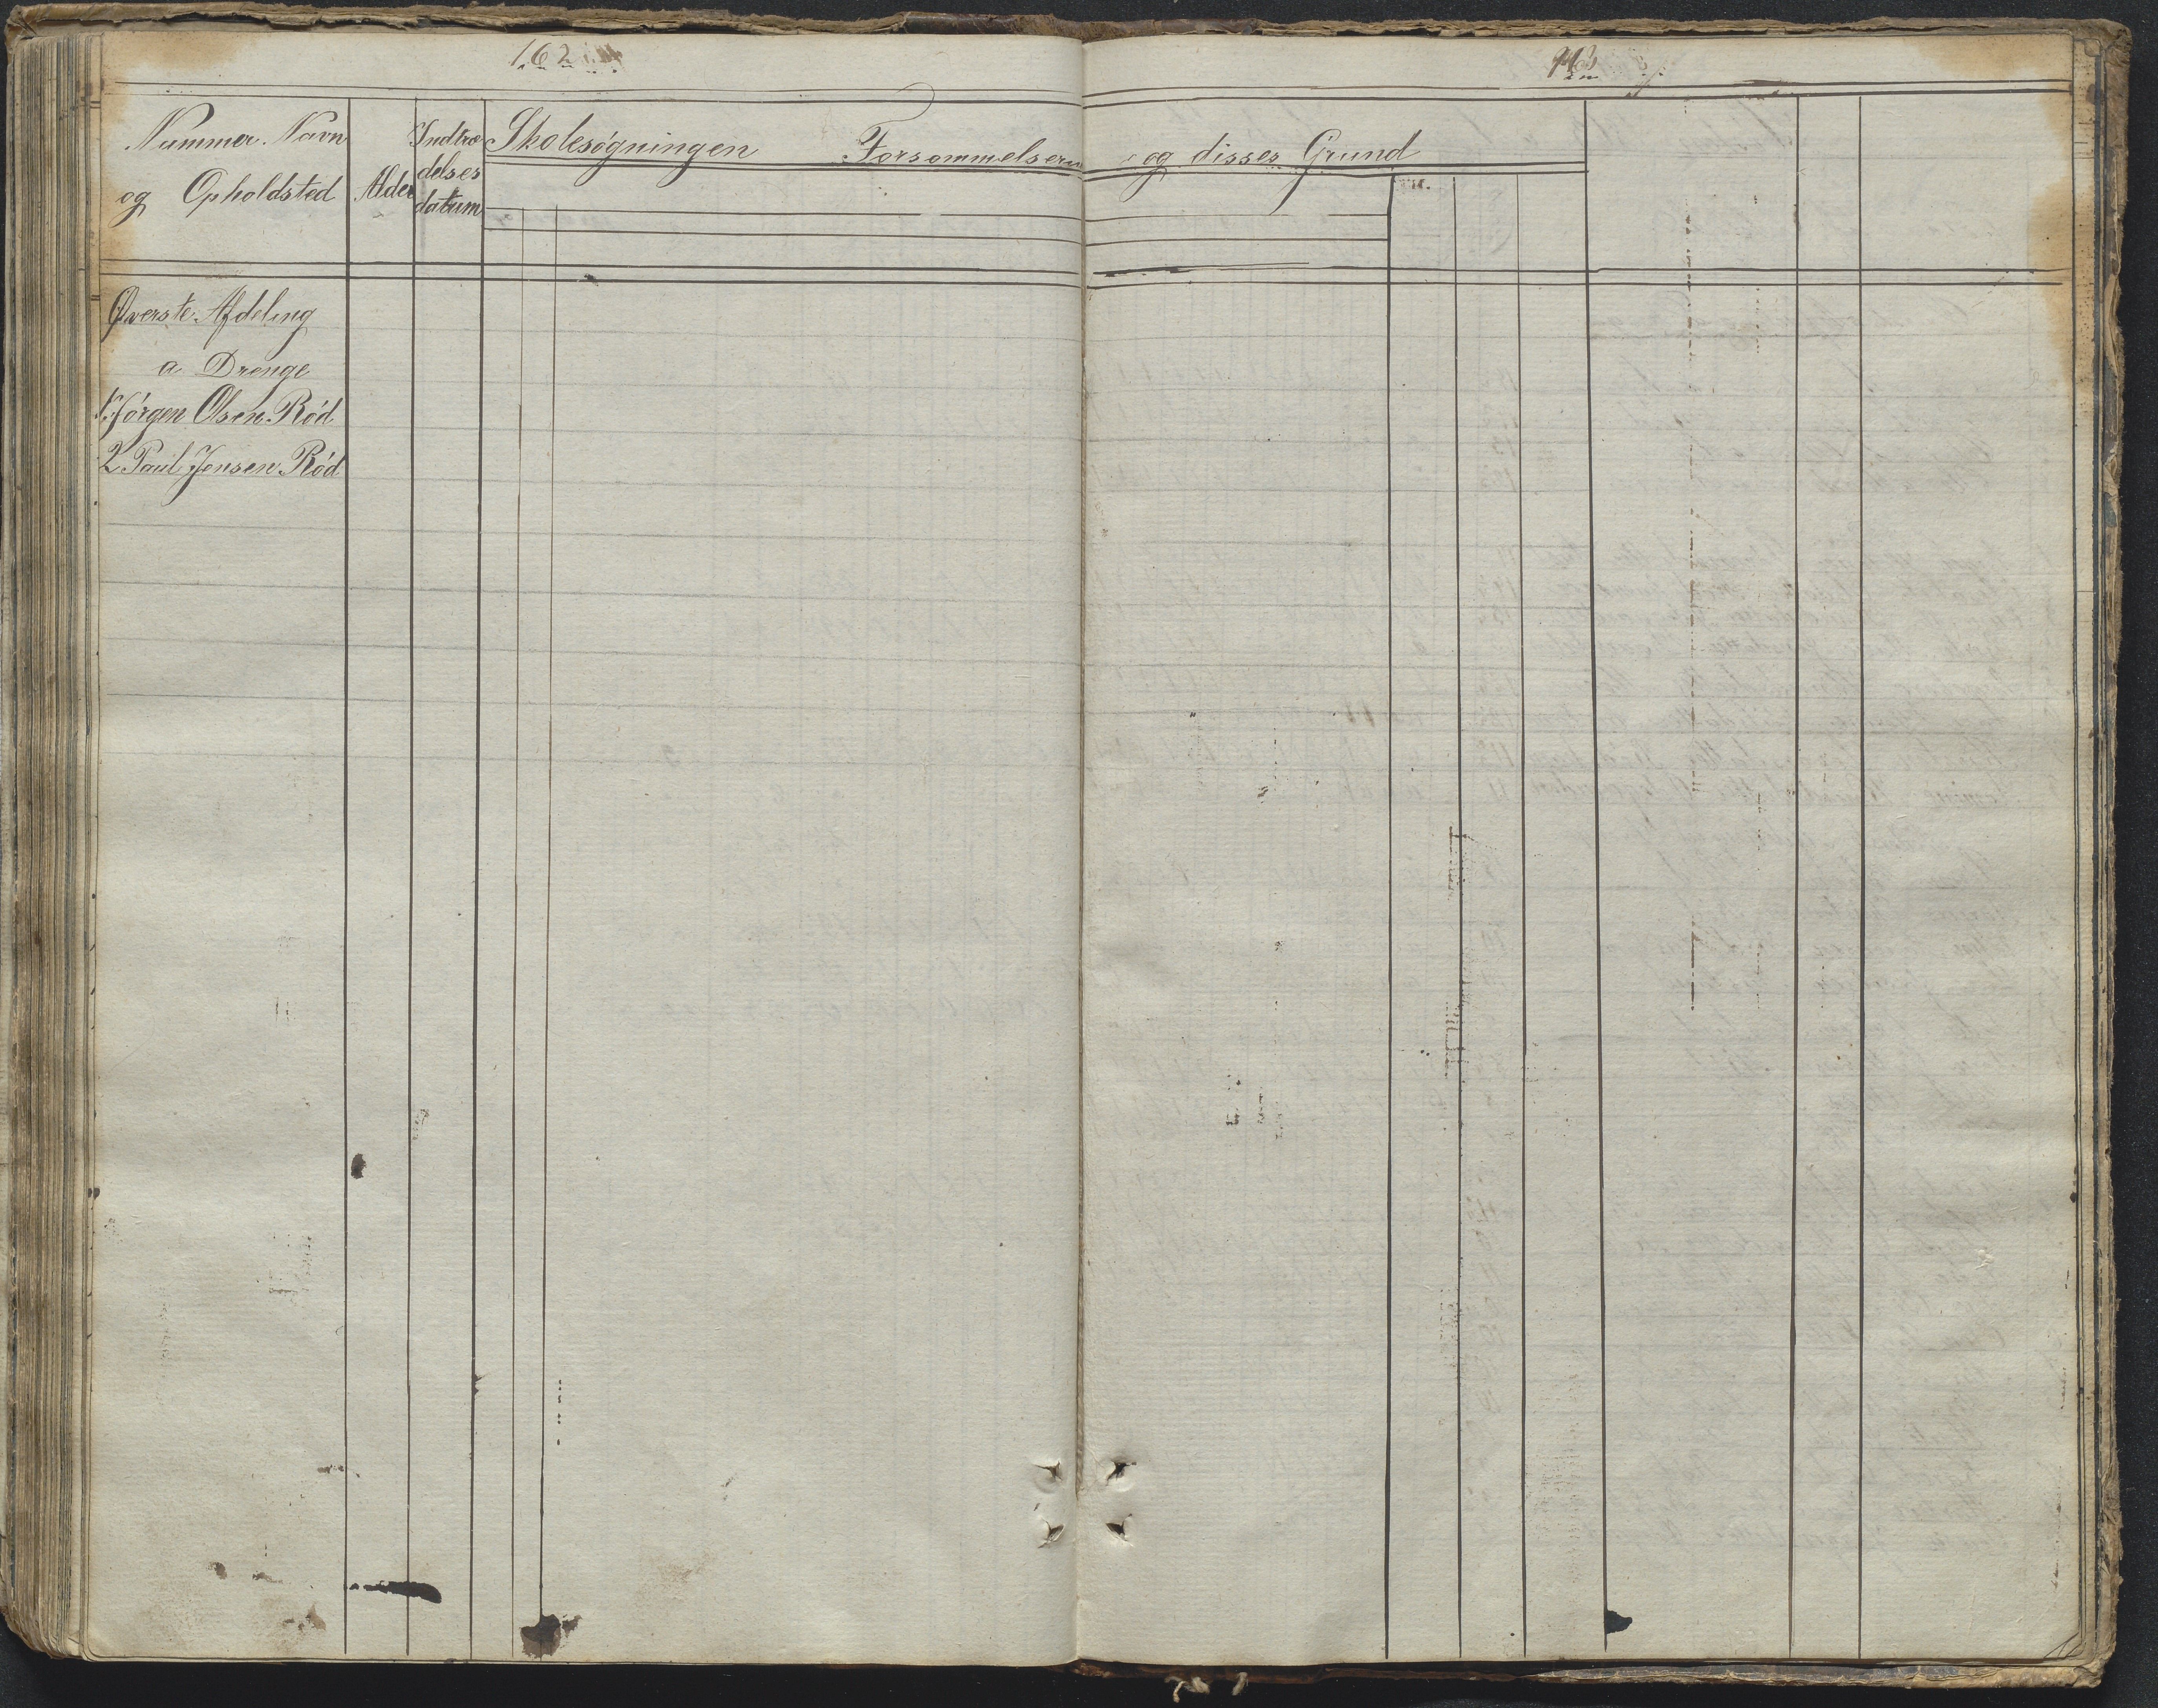 162
Nummer. Navn
og Opholdsted
Alder
Indtræ
delses
datum
Skolesøgningen Forsømmelsern og disses Grund
Øverste Afdeling
a Drenge
1. Jörgen Olsen. Röd
2 Paul Jensen. Röd